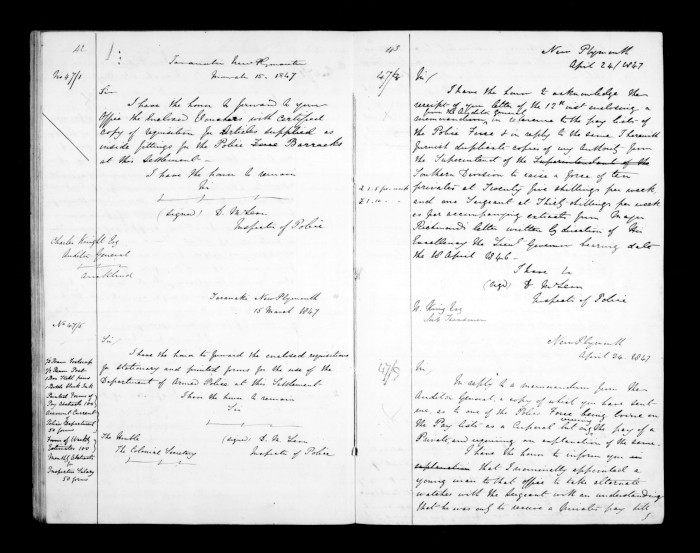 42
No 47/1
Taranaki New Plymouth
March 15. 1847
Sir
I have the honor to forward to your
Office the enclosed Vouchers with certified
copy of requisition for Articles supplied as
inside fittings for the Police Force Barracks
at this Settlement –
I have the honor to remain
Sir
(signed) D. McLean
Inspector of Police
Charles Knight Esq
Auditor General
Auckland
Taranaki New Plymouth
15 March 1847
No 47/5
Sir/
I have the honor to forward the enclosed requisitions
for stationery and printed forms for the use of the
Department of Armed Police at this Settlement
I have the honor to remain
Sir
(signed) D. McLean
Inspector of Police
The Honble
The Colonial Secretary
½ Ream Foolscap
½ Ream Post
1 Box pins
1 Bottle Black Ink
Printed Forms of
Pay Abstracts 100
Account Current
Police Department
50 forms
Forms of Weekly
Estimates 100
Monthly Abstracts
for
Inspectors Salary
50 forms
43
New Plymouth
April 24/1847
47/2
Sir/
I have the honor to acknowledge the
receipt of your letter of the 12th inst enclosing a
from the Auditor General
memorandum, in reference to the pay lists of
the Police Force & in reply to the same I herewith
furnish duplicate copies of my authority from
the Superintendent of the Superintendent of the
Southern Division to raise a force of ten
privates at Twenty five shillings per week
£1.5 per week
and one Sergeant at Thirty shillings per week
£1.10 –
as per accompanying estimate from Major
Richmonds letter written by direction of His
Excellency the Lieut Governor bearing date
the 18 April 1846 –
I have &c
(sigd) D. McLean
Inspector of Police
W. King Esq
Sub Treasurer
New Plymouth
April 24. 1847
47/3
Sir,
In reply to a memorandum from the
Auditor General, a copy of which you have sent
me, as to one of the Police Force being borne on
the Pay lists as a Corporal but only receiving the pay of a
Private, and requiring an explanation of the same.
I have the honor to inform you in
explanation that I nominally appointed a
young man to that office to take alternate
watches with the Sergeant with an understanding
that he was only to receive a Privates pay till